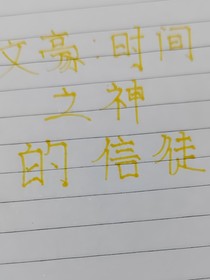 文豪:时间
之神
的信徒